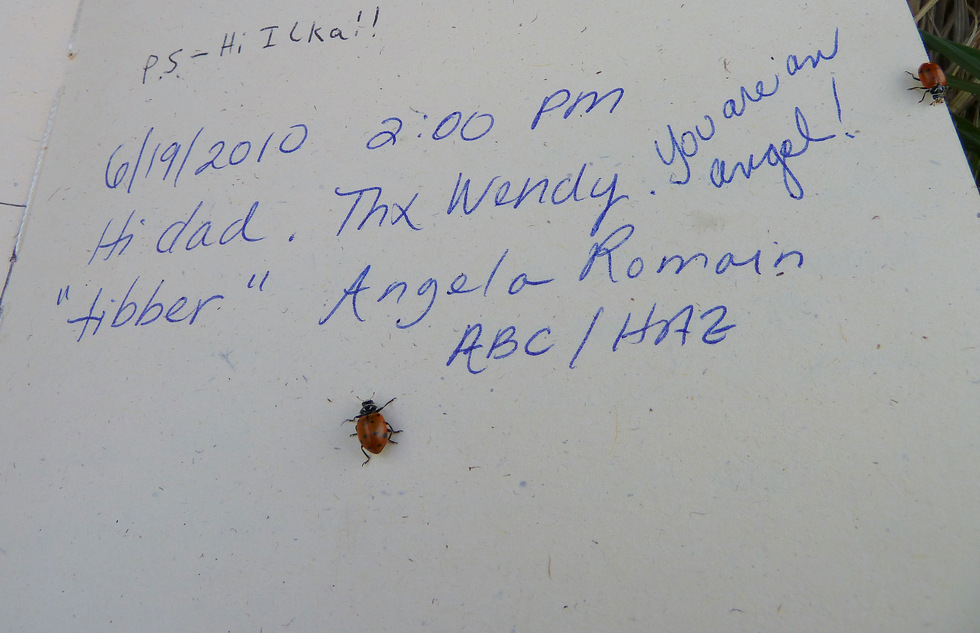 P.S. - Hi Ilka!!
6/19/2010 2:00 pm
Hi dad. Thx Wendy. You are an
angel!
"fibber" Angela Romain
ABC / HAZ